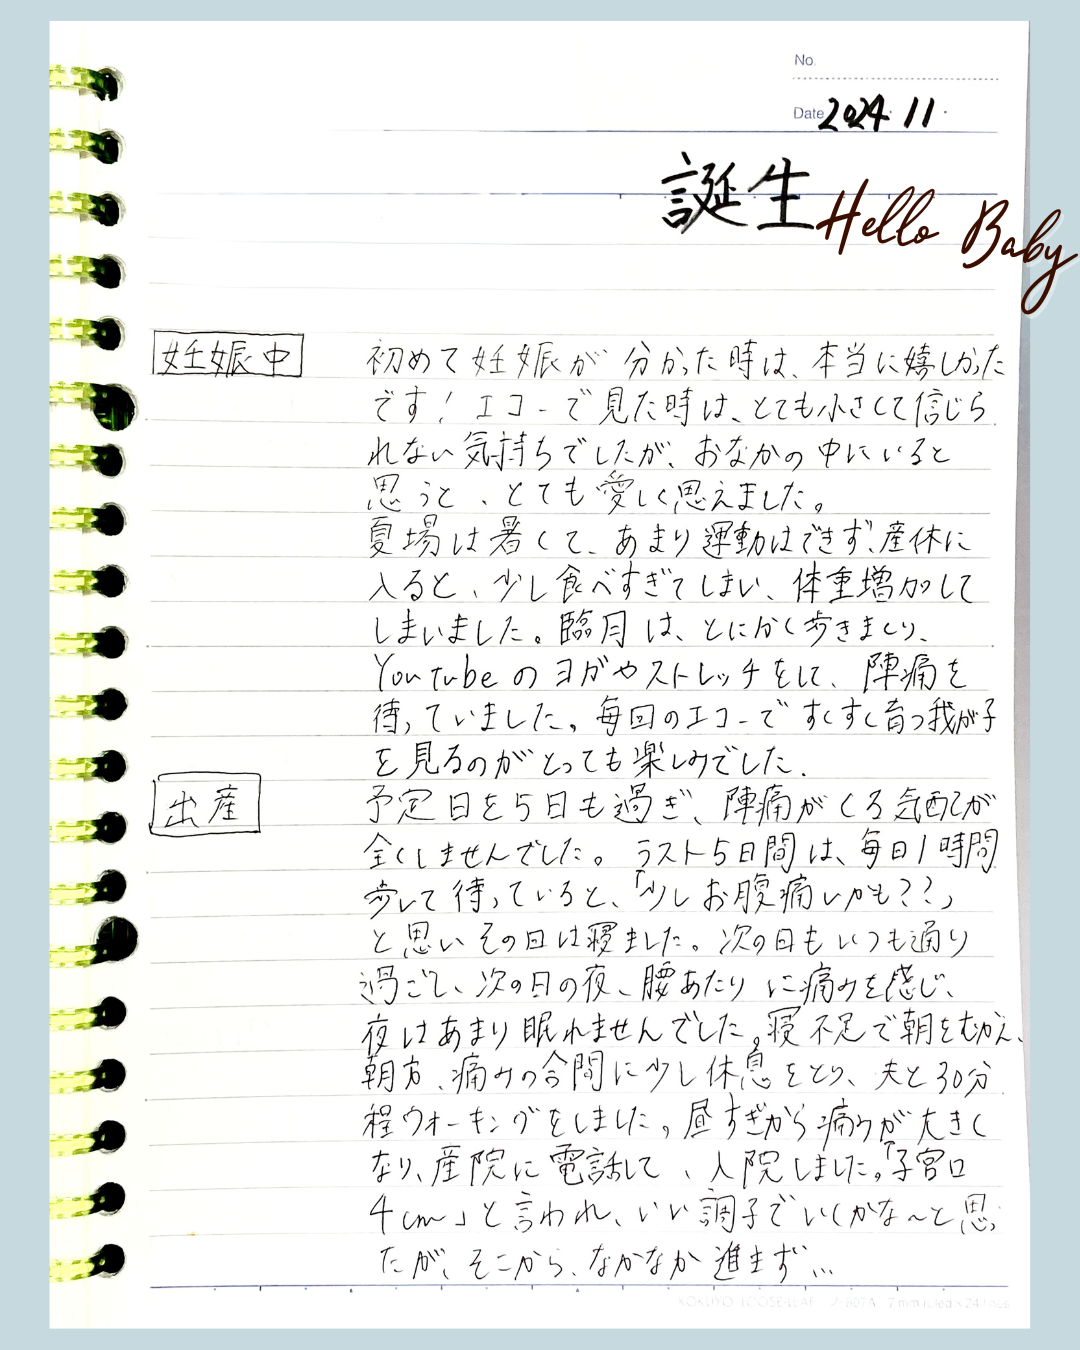 No.
Date 2024. 11 .
誕生 Hello Baby
妊娠中
初めて妊娠が分かった時は、本当に嬉しかった
です！エコーで見た時は、とても小さくて信じら
れない気持ちでしたが、おなかの中にいると
思うと、とても愛しく思えました。
夏場は暑くて、あまり運動はできず、産休に
入ると、少し食べすぎてしまい、体重増加して
しまいました。臨月は、とにかく歩きまくり、
Youtubeのヨガやストレッチをして、陣痛を
待っていました。毎回のエコーですくすく育つ我が子
を見るのがとっても楽しみでした.
出産
予定日を5日も過ぎ、陣痛がくる気配が
全くしませんでした。ラスト5日間は、毎日1時間
歩いて待っていると、「少しお腹痛いかも??」
と思いその日は寝ました。次の日もいつも通り
過ごし、次の日の夜、腰あたりに痛みを感じ、
夜はあまり眠れませんでした。寝不足で朝をむかえ、
朝方、痛みの合間に少し休息をとり、夫と30分
程ウォーキングをしました。昼すぎから痛みが大きく
なり、産院に電話して、入院しました。「子宮口
4cm」と言われ、いい調子でいくかな〜と思っ
たが、そこから、なかなか進まず...
KOKUYO LOOSE-LEAF
7 mm ruled